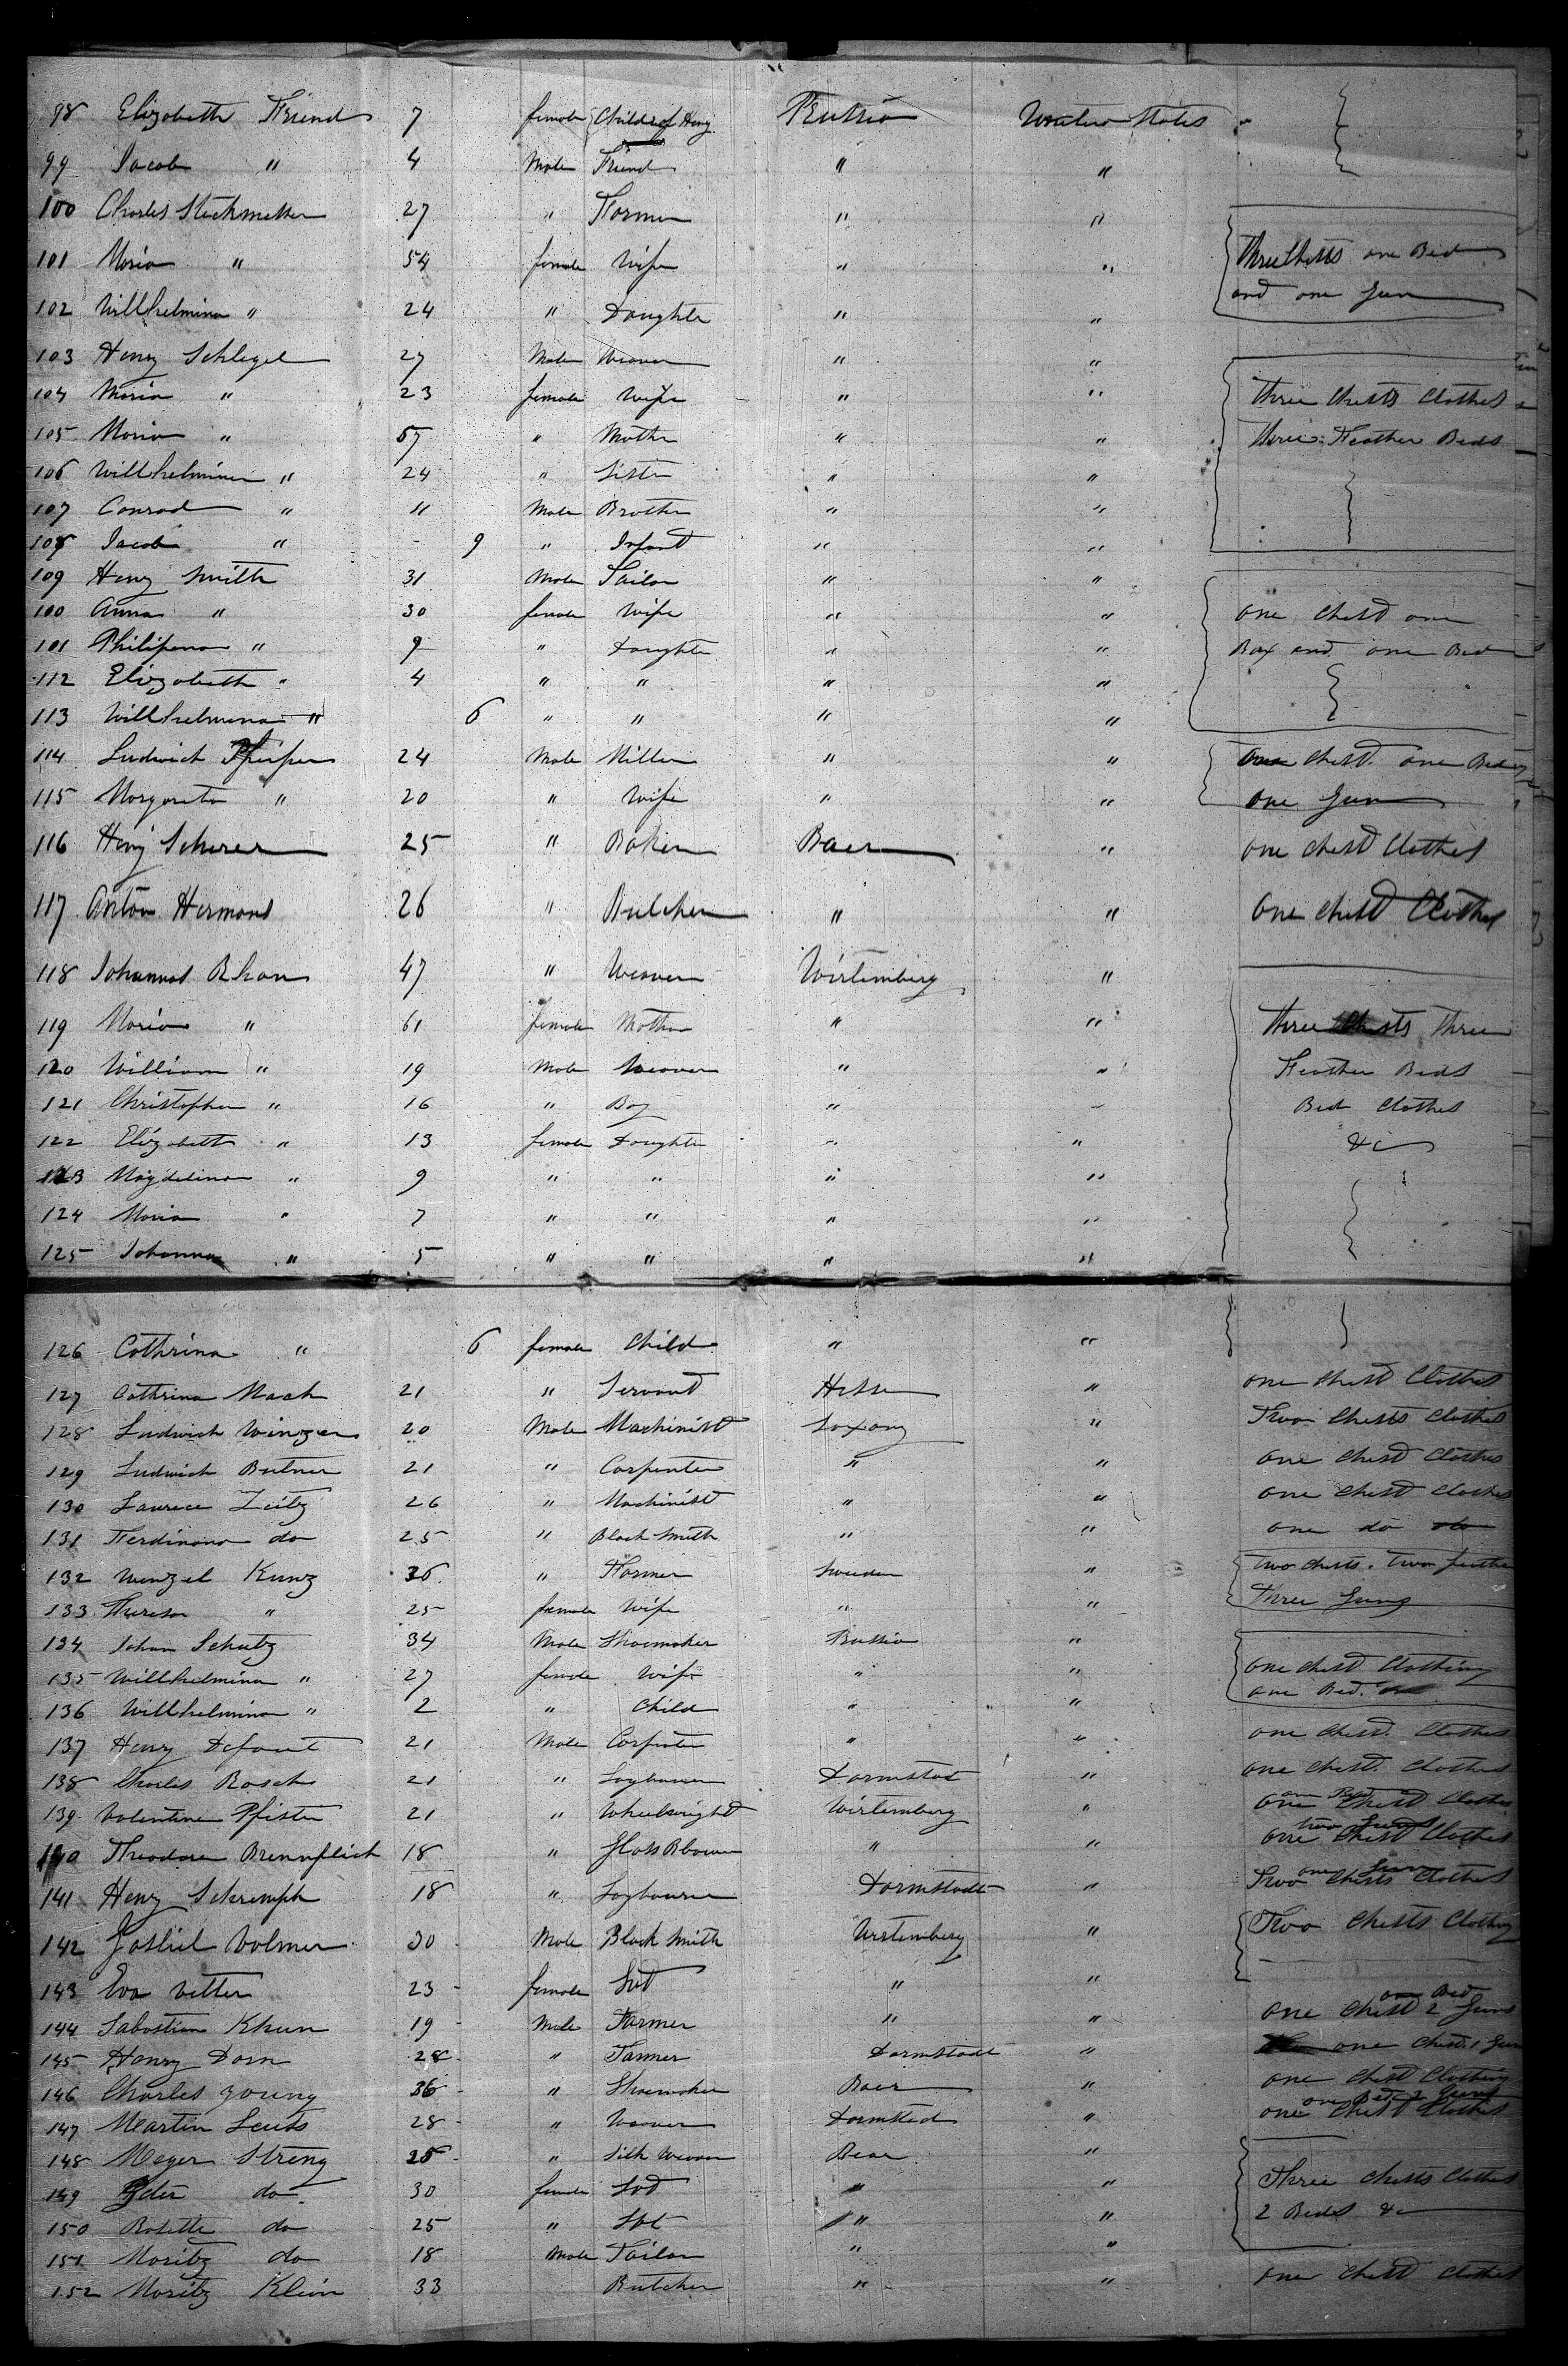 98 Elizabeth Friend 7 female Childr of Heny Prussia United States
99 Jacob " 4 Male Friend " "
100 Charles Steckmesser 27 " Farmer " "
101 Maria " 54 female Wife " " three Chests one Bed
102 Willhelmina " 24 " Daughter " " and one Gun
103 Henry Schlegel 27 Male Weaver " "
104 Maria " 23 female Wife " " three Chests Clothes
105 Maria " 57 " Mother " " three Feather Beds
106 Willhelmina " 24 " Sister " "
107 Conrad " 11 Male Brother " "
108 Jacob " - 9 " Infant " "
109 Heny Smith 31 Male Tailor " "
100 Anna " 30 female Wife " " one Chest one
101 Philipena " 9 " Daughter " " Box and one Bed
112 Elizabeth " 4 " " " "
113 Willhelmena " 6 " " " "
114 Ludwich Pfeifer 24 Male Miller " " one Chest one Bed
115 Margareta " 20 " Wife " " one Gun
116 Heny Scherer 25 " Baker Baer " one Chest Clothes
117 Anton Hermans 26 " Butcher " " One Chest Clothes
118 Johannas Rhan 47 " Weaver Wirtemberg "
119 Maria " 61 female Mother " " three Chests three
120 William " 19 Male Weaver " " Feather Beds
121 Christopher " 16 " Boy " " Bed Clothes
122 Elizabeth " 13 female Daughter " " &c
123 Magdelina " 9 " " " "
124 Maria " 7 " " " "
125 Johanna " 5 " " " "
126 Cathrina " 6 female Child " "
127 Cathrina Mack 21 " Servant Hesse " one Chest Clothes
128 Ludwich Winzer 20 Male Machinist Saxony " Two Chests Clothes
129 Ludwich Butner 21 " Carpenter " " one Chest Clothes
130 Laurece Zeitz 26 " Machinist " " one Chest Clothes
131 Ferdinand do 25 " Black Smith " " one do do
132 Wenzel Kunz 36 " Farmer Sweden " two chests. two feather
133 Theresa " 25 female Wife " " Three Guns
134 Johan Schutz 34 Male Shoemaker Prussia "
135 Willhelmina " 27 female Wife " " one chest Clothing
136 Willhelmina " 2 " Child " " one Bed.
137 Henry Defaut 21 Male Carpenter " " one Chest. Clothes
138 Charles Rosch 21 " Laybourer Darmstat " one Chest. Clothes
139 Valentine Pfister 21 " Wheelwright Wirtemberg " one Chest Clothes one Bed
140 Theodore Brennflick 18 " Glass Blower " " one Chest Clothes two Guns
141 Heny Schremph 18 " Laybourer Darmstadt " Two Chests Clothes one Gun
142 Gotliel Volmer 30 Male Black Smith Wrstemberg " Two Chests Clothing
143 Eva Vetter 23 female Svt " "
144 Sabastian Khun 19 Male Farmer " " one Chest 2 Guns one Bed
145 Henry Dorn 28 " Farmer Darmstadt " one Chest. 1 Gun
146 Charles Young 36 " Shoemaker Baer " one Chest Clothing
147 Martin Leuts 28 " Weaver Darmstad " one Chest Clothes one Bed 2 Guns
148 Meyer Streng 25 " Silk Weaver Bear "
149 do 30 female Svt " " Three Chests Clothes
150 Rosette do 25 " Svt " " 2 Beds &c
151 Moritz do 18 Male Tailor " "
152 Moritz Klein 33 Butcher " " one Chest Clothes